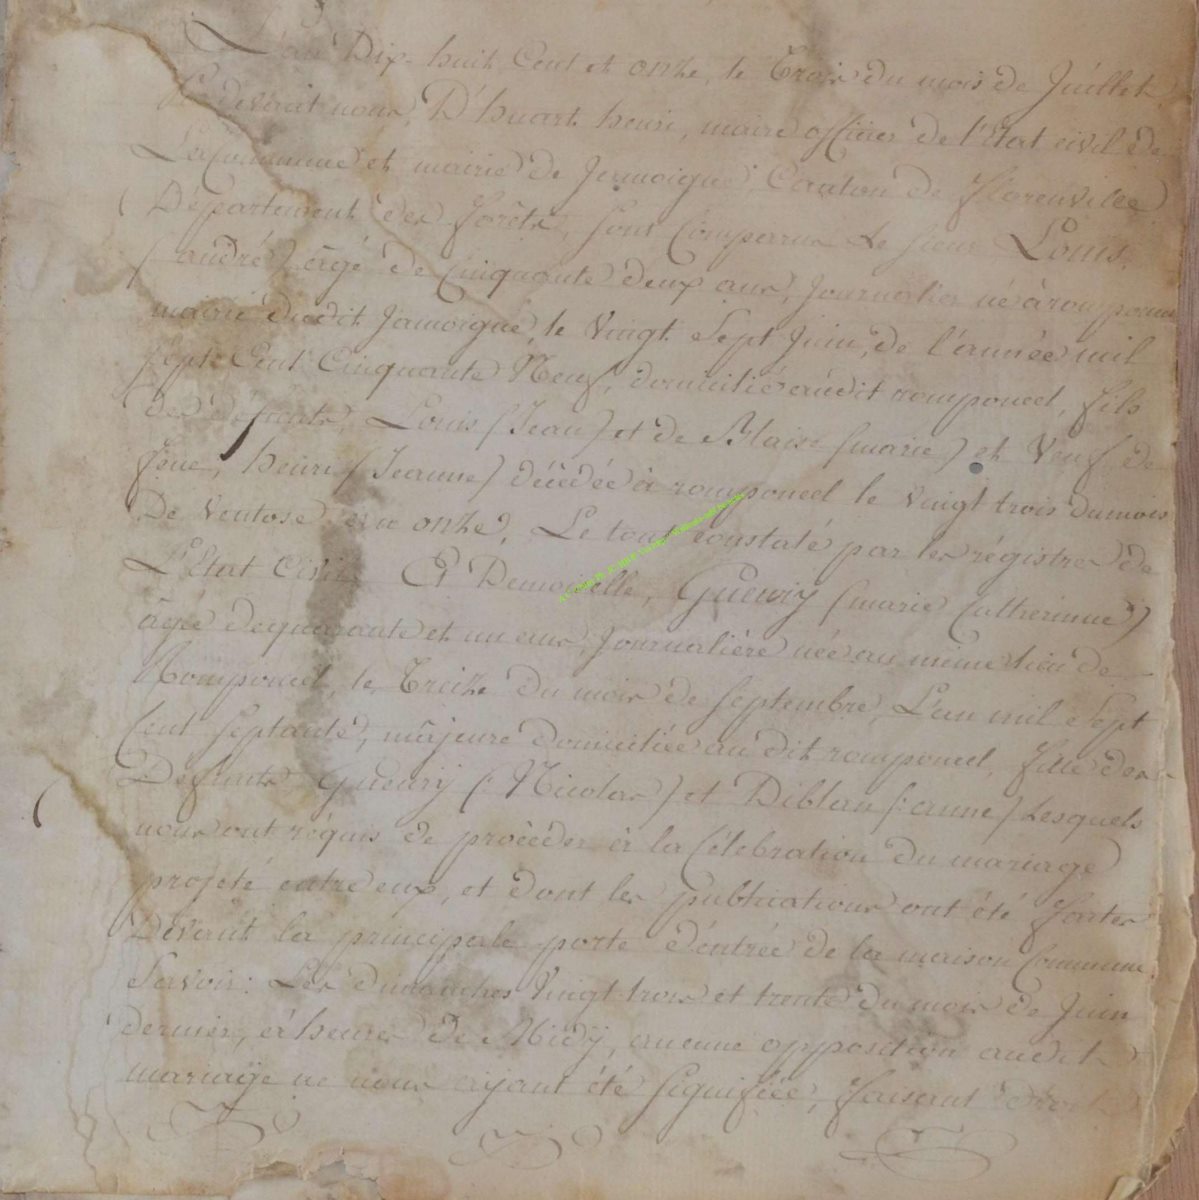 L'an Dix huit Cent et onze, le Trois du mois de Juillet
Pardevant nous, D'huart henri, maire officier de l'Etat civil de
La Commune et mairie de Jemoigne, Canton de florenville
Département des forêts, sont Comparus Le sieur Louis
(andré) âgé de Cinquante deux ans, Journalier né à romponcel
mairie dudit Jamoigne, le Vingt Sept Juin, de l'année mil
sept Cent Cinquante Neuf, domicilié audit romponcel, fils
des défunts, Louis (Jean) et de Blaise (marie) et Veuf de
feue, henri (Jeanne) décédée à romponcel le vingt trois du mois
De Ventose an onze, Le tout constaté par les régistres de
L'Etat Civil Et Demoiselle, Gueury (marie Catherinne)
âgée de quarante et un ans, Journalière née au même lieu de
Romponcel, le Treize du mois de Septembre, L'an mil Sept
Cent Septante, majeure domiciliée au dit romponcel, fille des
Défunts Gueury (: Nicolas) et Diblan (: anne) Lesquels
nous ont réquis de procéder à la Célebration du mariage
projeté entre eux, et dont les publications ont été faites
Devant la principale porte d'entrée de la maison Commune.
Savoir: Les dimanches Vingt trois et trente du mois de Juin
dernier, à l'heure de Midy, aucune opposition audit
mariage ne nous ayant été signifiée, faisant droit